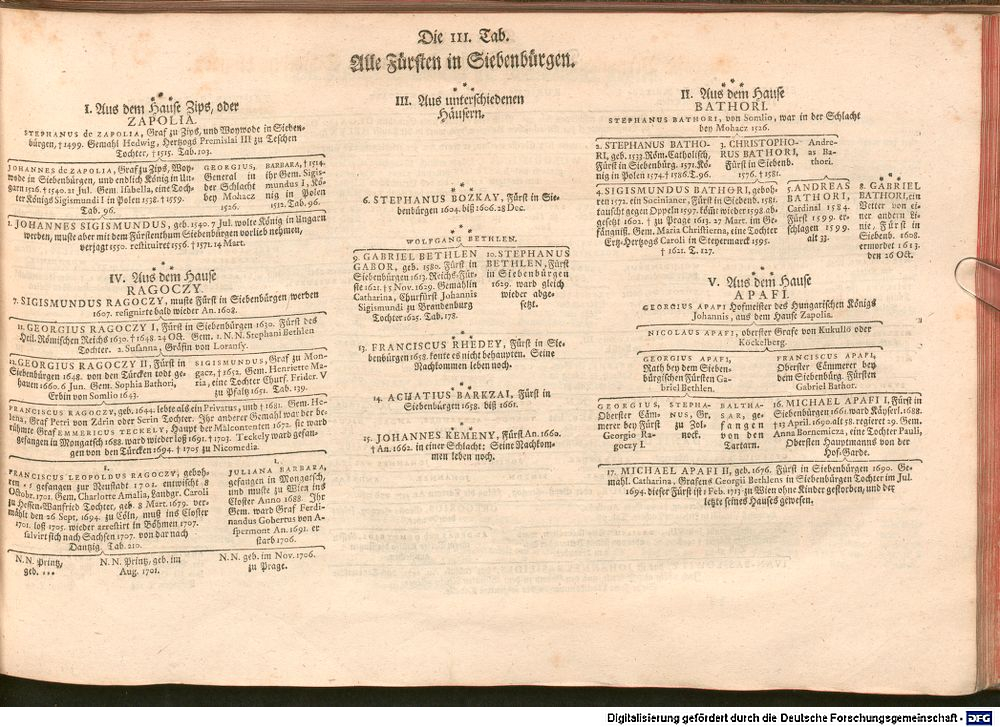 Die III. Tab.
Alle Fürsten in Siebenbürgen.
I. Aus dem Hause Zips, oder
ZAPOLIA.
STEPHANUS de ZAPOLIA, Graf zu Zips, und Woywode in Sieben-
bürgen, † 1499. Gemahl Hedwig, Hertzogs Premislai III zu Teschen
Tochter, † 1515. Tab. 103.
JOHANNES de ZAPOLIA, Graf zu Zips, Woy-
wode in Siebenbürgen, und endlich König in Un-
garn 1526. † 1540. 21 Jul. Gem. Isabella, eine Toch-
ter Königs Sigismundi I in Polen 1538. † 1559.
Tab. 96.
GEORGIUS,
General in
der Schlacht
bey Mohacz
1526.
BARBARA, † 1514.
ihr Gem. Sigis-
mundus I, Kö-
nig in Polen
1512. Tab. 96.
1. JOHANNES SIGISMUNDUS, geb. 1540. 7 Jul. wolte König in Ungarn
werden, muste aber mit dem Fürstenthum Siebenbürgen vorlieb nehmen,
verjagt 1550. restituiret 1556. † 1571. 14 Mart.
IV. Aus dem Hause
RAGOCZY.
7. SIGISMUNDUS RAGOCZY, muste Fürst in Siebenbürgen werden
1607. resignirte bald wieder An. 1608.
11. GEORGIUS RAGOCZY I, Fürst in Siebenbürgen 1630. Fürst des
Heil. Römischen Reichs 1630. † 1648. 24 Oct. Gem. 1. N. N. Stephani Bethlen
Tochter. 2. Susanna, Gräfin von Loransy.
12. GEORGIUS RAGOCZY II, Fürst in
Siebenbürgen 1648. von den Türcken todt ge-
hauen 1660. 6 Jun. Gem. Sophia Bathori,
Erbin von Somlio 1643.
SIGISMUNDUS, Graf zu Mon-
gacz, † 1652. Gem. Henriette Ma-
ria, eine Tochter Churf. Frider. V
zu Pfaltz 1651. Tab. 139.
FRANCISCUS RAGOCZY, geb. 1644. lebte als ein Privatus, und † 1681. Gem. He-
lena, Graf Petri von Zdrin oder Serin Tochter. Ihr anderer Gemahl war der be-
rühmte Graf EMMERICUS TECKELY, Haupt der Malcontenten 1672. sie ward
gefangen in Mongatsch 1688. ward wieder loß 1691. † 1703. Teckely ward gefan-
gen von den Türcken 1694. † 1705 zu Nicomedia.
1.
FRANCISCUS LEOPOLDUS RAGOCZY, geboh-
ren . , gefangen zur Neustadt 1701. entwischt 8
Octobr. 1701. Gem. Charlotte Amalia, Landgr. Caroli
zu Hessen-Wanfried Tochter, geb. 8 Mart. 1679. ver-
mählt den 26 Sept. 1694. zu Cöln, muß ins Closter
1701. loß 1705. wieder arrestiret in Böhmen 1707.
salvirt sich nach Sachsen 1707. von dar nach
Dantzig. Tab. 210.
1.
JULIANA BARBARA,
gefangen in Mongatsch,
und muste zu Wien ins
Closter Anno 1688. Ihr
Gem. ward Graf Ferdi-
nandus Gobertus von A-
spermont An. 1691. er
starb 1706.
N. N. Printz,
geb. ...
N. N. Printz, geb. im
Aug. 1701.
N. N. geb. im Nov. 1706.
zu Prage.
III. Aus unterschiedenen
Häusern.
6. STEPHANUS BOZKAY, Fürst in Sie-
benbürgen 1604. biß 1606. 28 Dec.
WOLFGANG BETHLEN.
9. GABRIEL BETHLEN
GABOR, geb. 1580. Fürst in
Siebenbürgen 1613. Reichs-Für-
ste 1621. † 5 Nov. 1629. Gemahlin
Catharina, Churfürst Johannis
Sigismundi zu Brandenburg
Tochter 1625. Tab. 178.
10. STEPHANUS
BETHLEN, Fürst
in Siebenbürgen
1629. ward gleich
wieder abge-
setzt.
13. FRANCISCUS RHEDEY, Fürst in Sie-
benbürgen 1658. konte es nicht behaupten. Seine
Nachkommen leben noch.
14. ACHATIUS BARKZAI, Fürst in
Siebenbürgen 1658. biß 1661.
15. JOHANNES KEMENY, Fürst An. 1660.
† An. 1662. in einer Schlacht; Seine Nachkom-
men leben noch.
II. Aus dem Hause
BATHORI.
STEPHANUS BATHORI, von Somlio, war in der Schlacht
bey Mohacz 1526.
2. STEPHANUS BATHO-
RI, geb. 1533. Röm. Catholisch,
Fürst in Siebenbürg. 1571. Kö-
nig in Polen 1574. † 1586. T. 96.
3. CHRISTOPHO-
RUS BATHORI,
Fürst in Siebenb.
1576. † 1581.
Andre-
as Ba-
thori.
4. SIGISMUNDUS BATHORI, geboh-
ren 1572. ein Socinianer, Fürst in Siebenb. 1581.
tauscht gegen Oppeln 1597. kömt wieder 1598. ab-
gesetzt 1602. † zu Prage 1613. 27 Mart. im Ge-
fängniß. Gem. Maria Christierna, eine Tochter
Ertz-Hertzogs Caroli in Steyermarck 1595.
† 1621. T. 127.
5. ANDREAS
BATHORI,
Cardinal 1584.
Fürst 1599. er-
schlagen 1599.
alt 33.
8. GABRIEL
BATHORI, ein
Vetter von ei-
ner andern Li-
nie, Fürst in
Siebenb. 1608.
ermordet 1613.
den 26 Oct.
V. Aus dem Hause
APAFI.
GEORGIUS APAFI Hofmeister des Hungarischen Königs
Johannis, aus dem Hause Zapolia.
NICOLAUS APAFI, oberster Grafe von Kukullo oder
Kockelberg.
GEORGIUS APAFI,
Rath bey dem Sieben-
bürgischen Fürsten Ga-
briel Bethlen.
FRANCISCUS APAFI,
Oberster Cämmerer bey
dem Siebenbürg. Fürsten
Gabriel Bathor.
GEORGIUS,
Oberster Cäm-
merer bey Fürst
Georgio Ra-
goczy I.
STEPHA-
NUS, Gr.
zu Zol-
nock.
BALTHA-
SAR, ge-
fangen
von den
Tartarn.
16. MICHAEL APAFI I, Fürst in
Siebenbürgen 1661. ward Käyserl. 1688.
† 13 April. 1690. alt 58. regieret 29. Gem.
Anna Bornemicza, eine Tochter Pauli,
Obersten Hauptmanns von der
Hof-Garde.
17. MICHAEL APAFI II, geb. 1676. Fürst in Siebenbürgen 1690. Ge-
mahl. Catharina, Grafens Georgii Bethlens in Siebenbürgen Tochter im Jul.
1694. dieser Fürst ist 1 Febr. 1713 zu Wien ohne Kinder gestorben, und der
letzte seines Hauses gewesen.
Digitalisierung gefördert durch die Deutsche Forschungsgemeinschaft - DFG